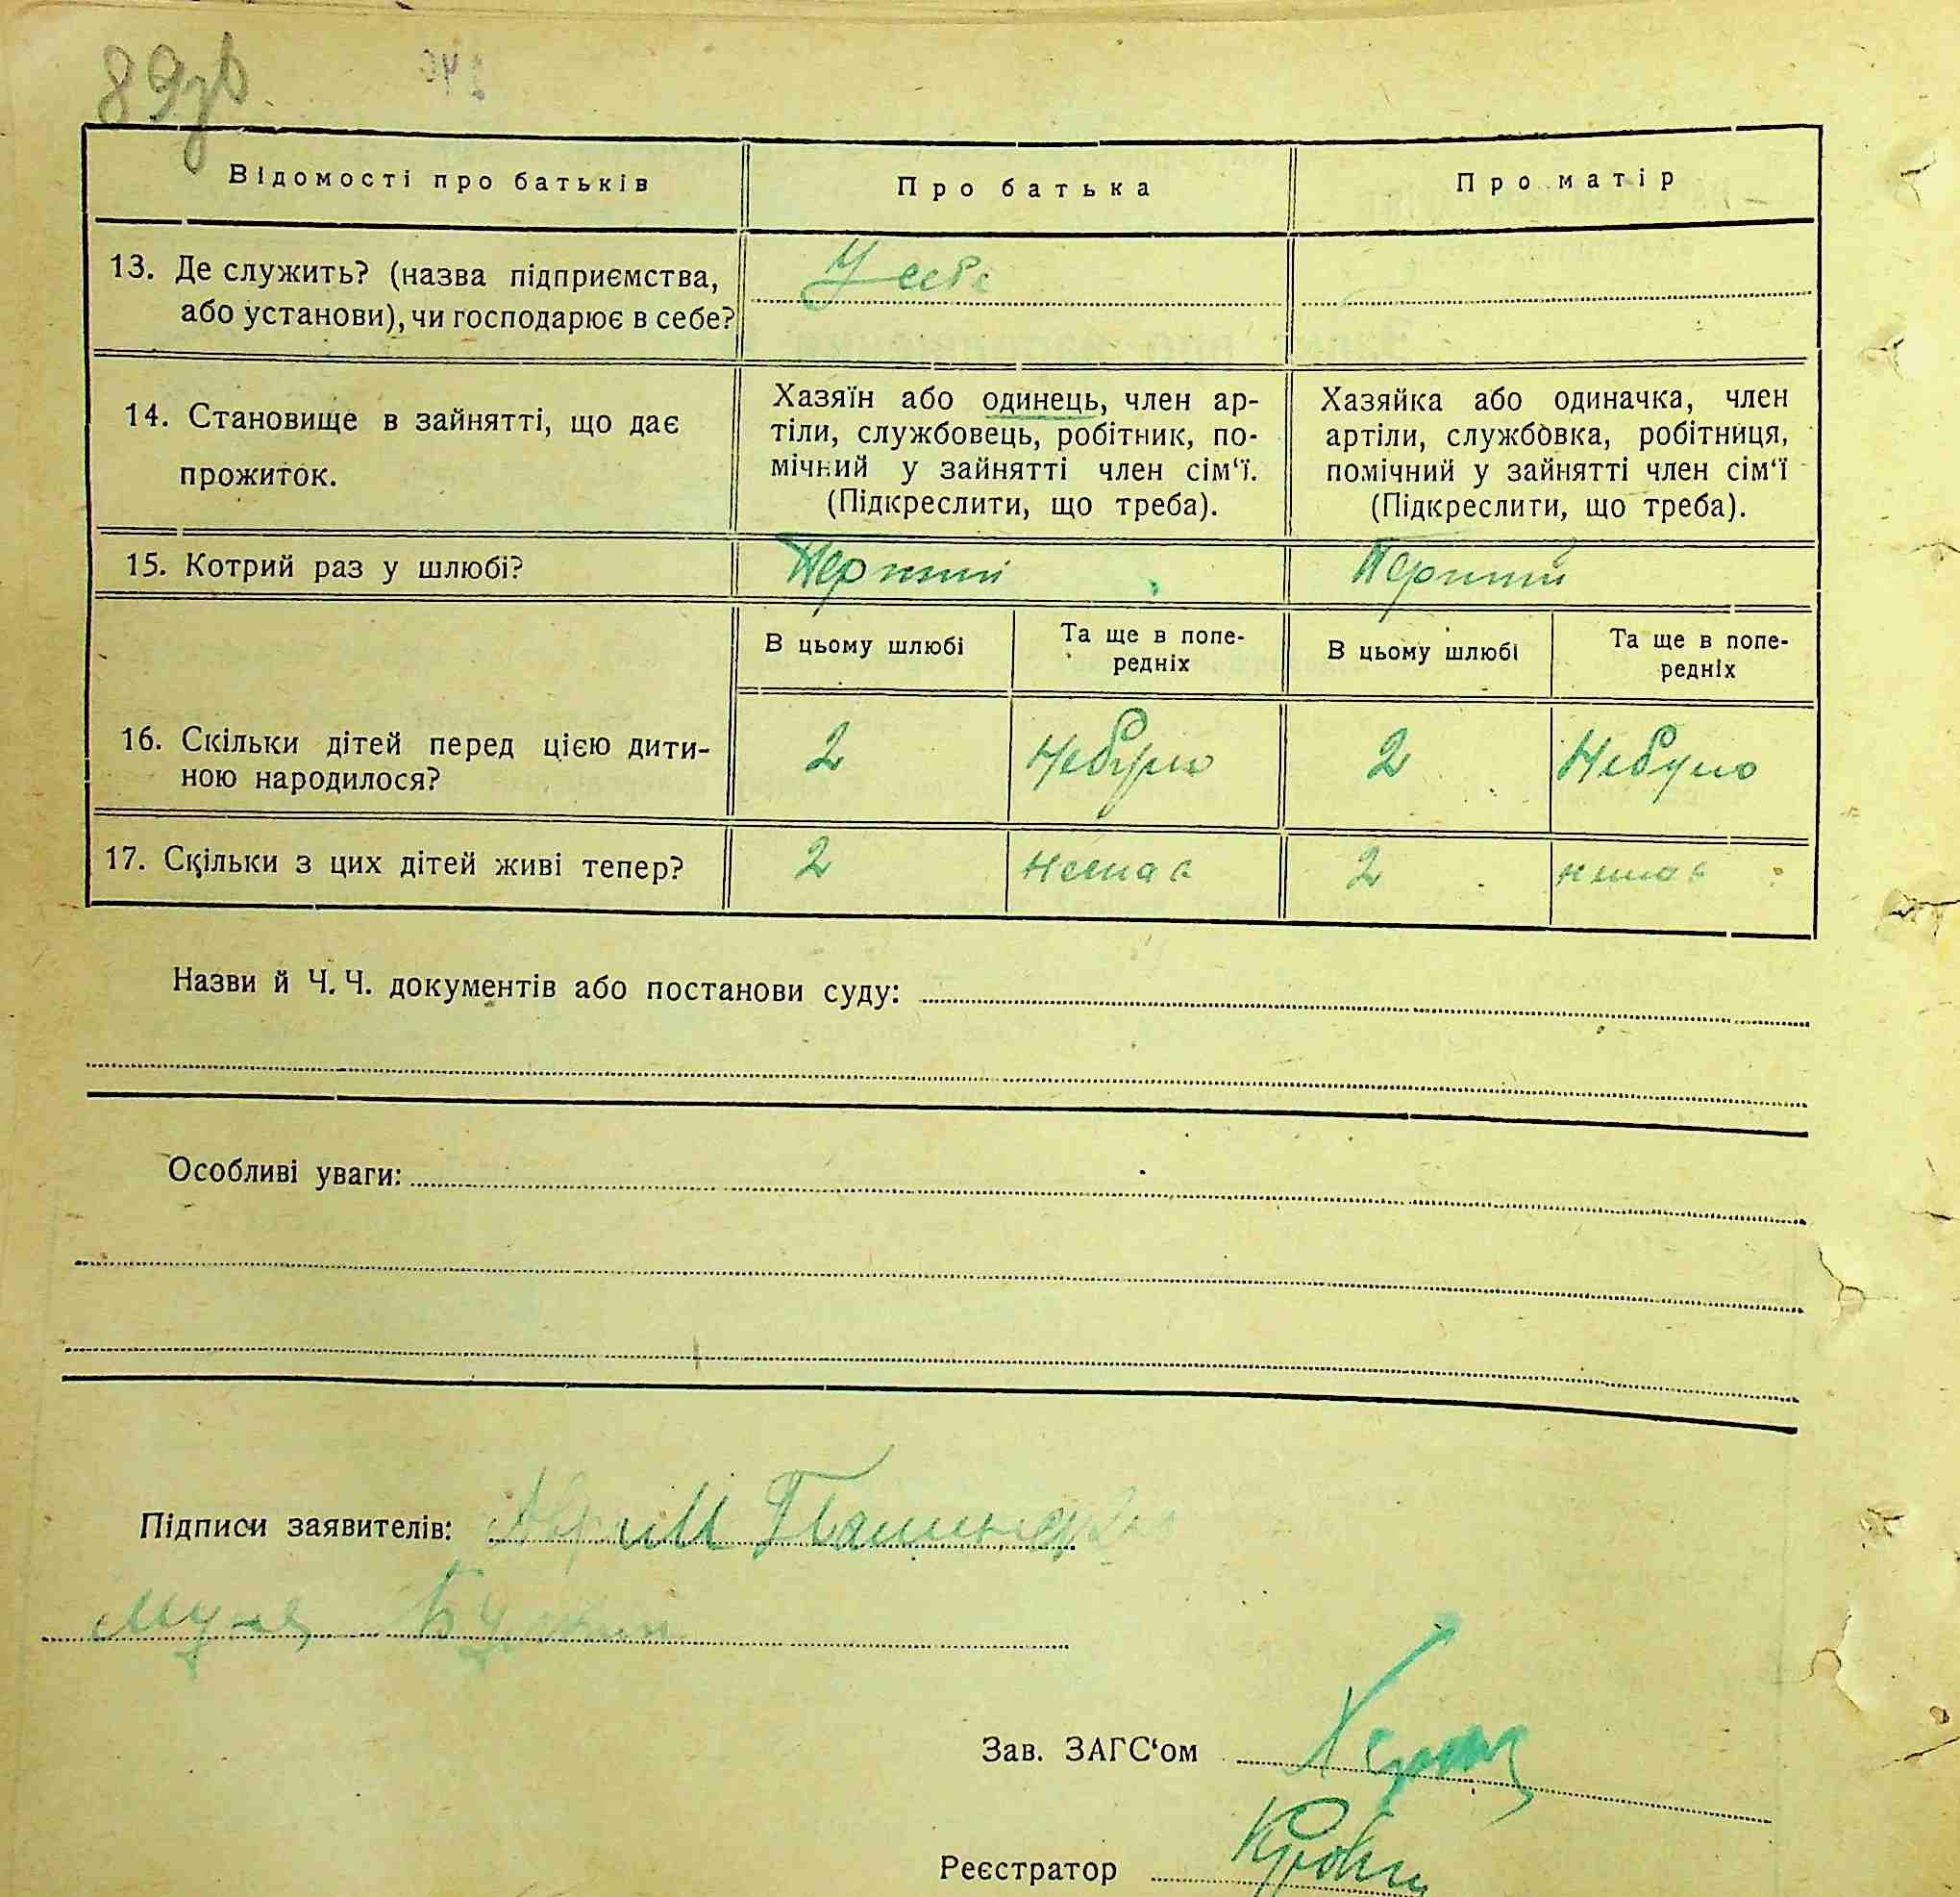 89зв
Відомості про батьків
Про батька
Про матір
13. Де служить? (назва підприємства,
або установи), чи господарює в себе?
У себе
14. Становище в зайнятті, що дає
прожиток.
Хазяїн або одинець, член ар-
тіли, службовець, робітник, по-
мічний у зайнятті член сім‘ї.
(Підкреслити, що треба).
Хазяйка або одиначка, член
артіли, службовка, робітниця,
помічний у зайнятті член сім‘ї
(Підкреслити, що треба).
15. Котрий раз у шлюбі?
Перший
Перший
В цьому шлюбі
Та ще в попе-
редніх
В цьому шлюбі
Та ще в попе-
редніх
16. Скільки дітей перед цією дити-
ною народилося?
2
Небуло
2
Небуло
17. Скільки з цих дітей живі тепер?
2
немає
2
немає
Назви й Ч. Ч. документів або постанови суду:
Особливі уваги:
Підписи заявителів:
Зав. ЗАГС‘ом
Реєстратор